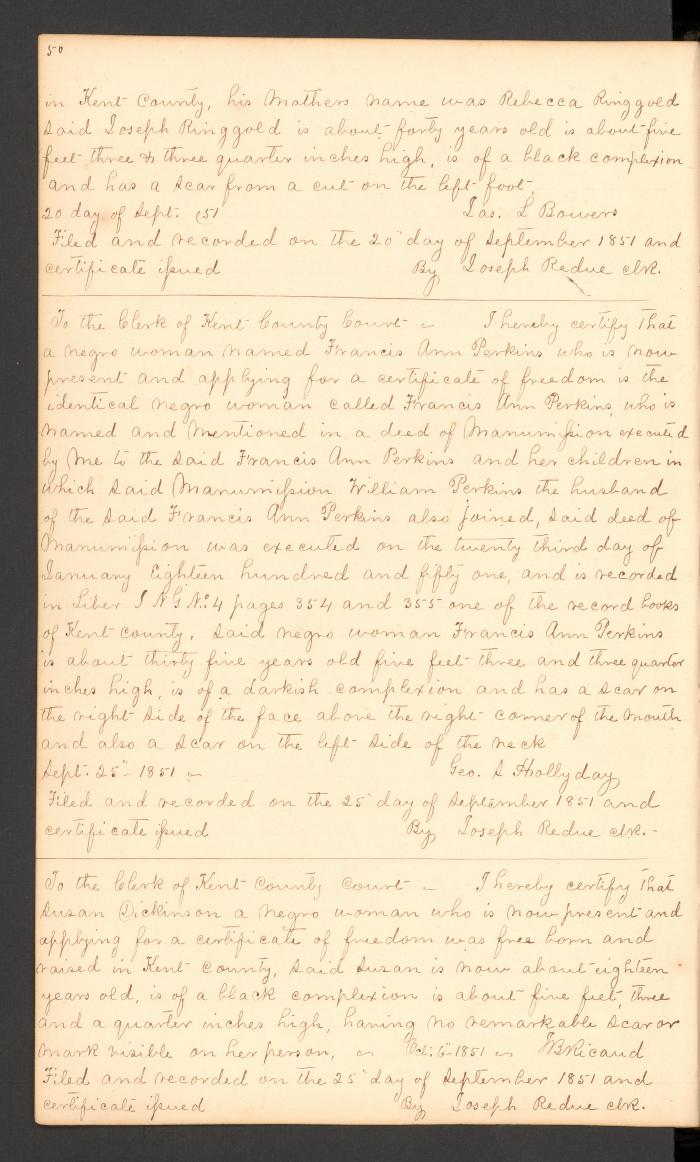 50
in Kent County, his Mothers name was Rebecca Ringgold
said Joseph Ringgold is about forty years old is about five
feet three & three quarter inches high, is of a black complexion
and has a scar from a cut on the left foot.
20 day of Sept. 51 Jas. L Bowers
Filed and recorded on the 20" day of September 1851 and
certificate issued By Joseph Redue clk.
To the Clerk of Kent County Court ~ I hereby certify that
a negro woman named Francis Ann Perkins who is now
present and applying for a certificate of freedom is the
identical negro woman called Francis Ann Perkins, who is
named and mentioned in a deed of Manumission executed
by me to the said Francis Ann Perkins and her children in
which said Manumission William Perkins the husband
of the said Francis Ann Perkins also joined, said deed of
Manumission was executed on the twenty third day of
January Eighteen hundred and fifty one, and is recorded
in Liber J N G No. 4 pages 354 and 355 one of the record books
of Kent county. said negro woman Francis Ann Perkins
is about thirty five years old five feet three and three quarter
inches high, is of a darkish complexion and has a scar on
the right side of the face above the right corner of the mouth
and also a scar on the left side of the neck
Sept. 25" 1851 ~ Geo. S Hollyday
Filed and recorded on the 25" day of September 1851 and
certificate issued By Joseph Redue clk.-
To the Clerk of Kent County Court ~ I hereby certify that
Susan Dickinson a negro woman who is now present and
applying for a certificate of freedom was free born and
raised in Kent County, said Susan is now about eighteen
years old, is of a black complexion is about five feet, three
and a quarter inches high, having no remarkable scar or
mark visible on her person, ~ Oct: 6" 1851 ~ JBRicaud
Filed and recorded on the 25" day of September 1851 and
certificate issued By Joseph Redue clk.